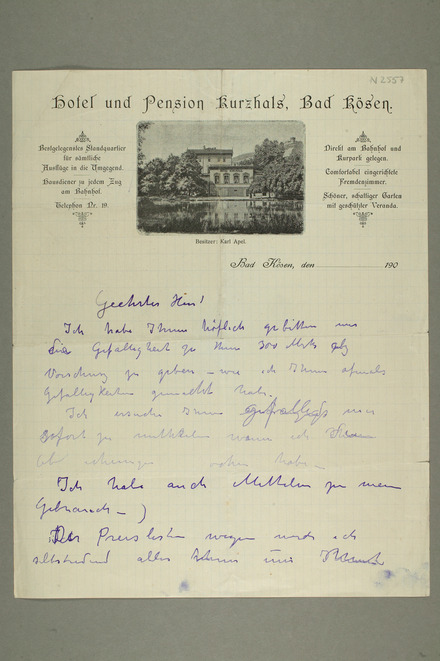 N 2557
Hotel und Pension Kurzhals, Bad Kösen.
Bestgelegenstes Standquartier
für sämtliche
Ausflüge in die Umgegend.
Hausdiener zu jedem Zug
am Bahnhof.
Telephon Nr. 19.
Direkt am Bahnhof und
Kurpark gelegen.
Comfortabel eingerichtete
Fremdenzimmer.
Schöner, schattiger Garten
mit geschützter Veranda.
Besitzer: Karl Apel.
Bad Kösen, den 190
Geehrter Herr!
Ich habe Ihnen höflich gebitten mir
die Gefälligkeit zu thun 300 Mark als
Vorschuss zu geben – wie ich Ihnen oftmals
Gefälligkeiten gemacht habe.
Ich ersuche Ihnen mir
sofort zu mittheilen wann ich
habe –
Ich habe auch zu meinen
Gebrauch –)
Der Preisliste wegen werde ich
alles